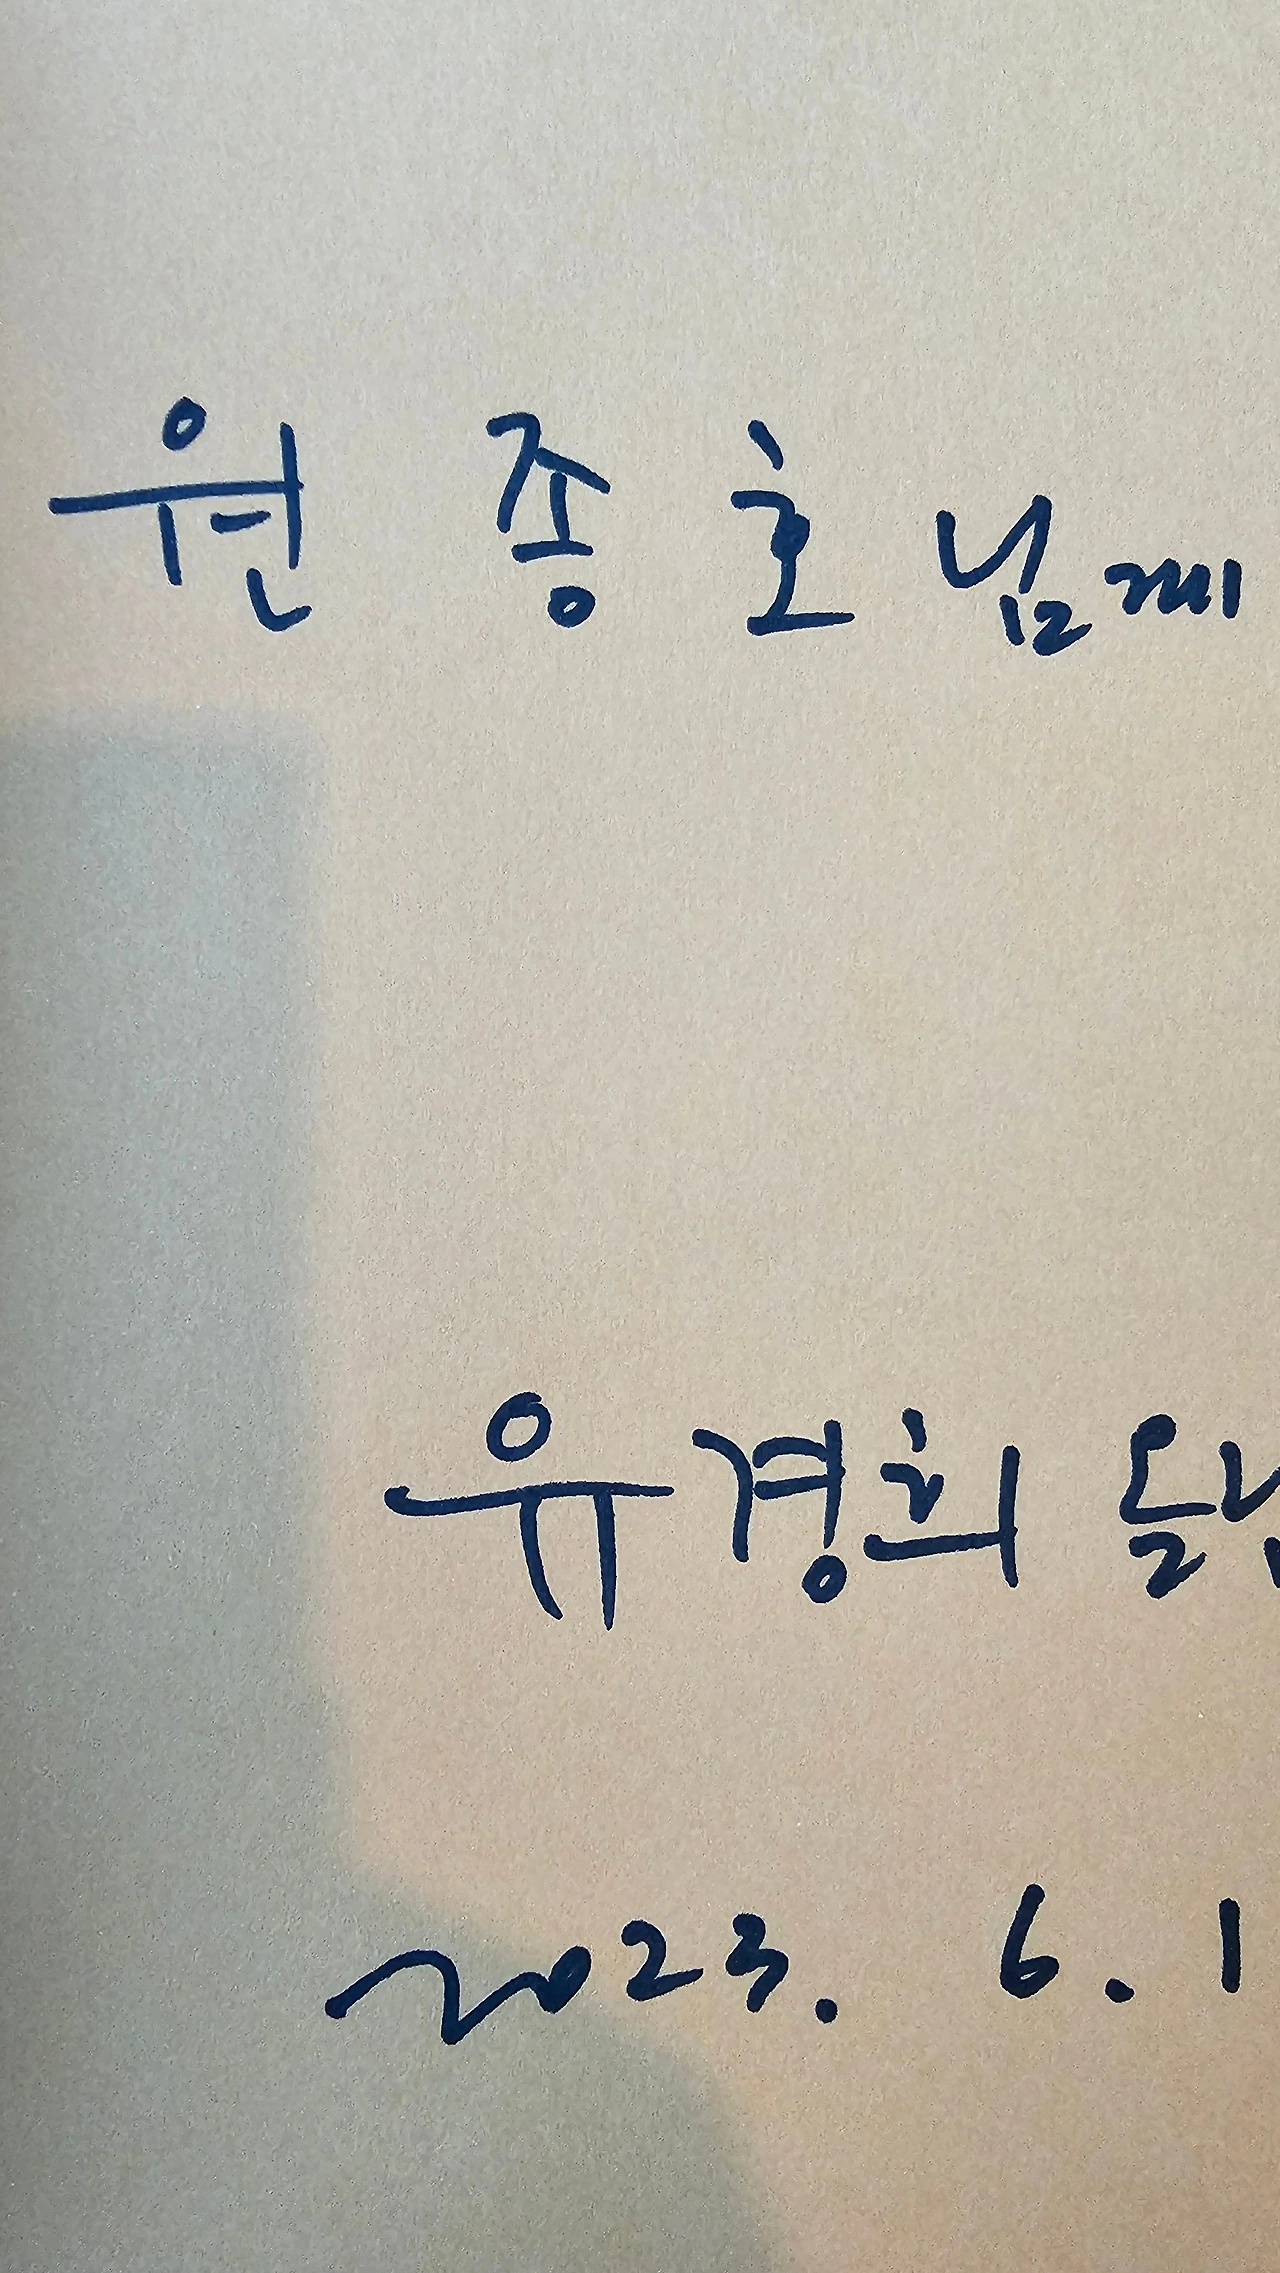 원종호님께
유경희 올림
2023. 6. 1